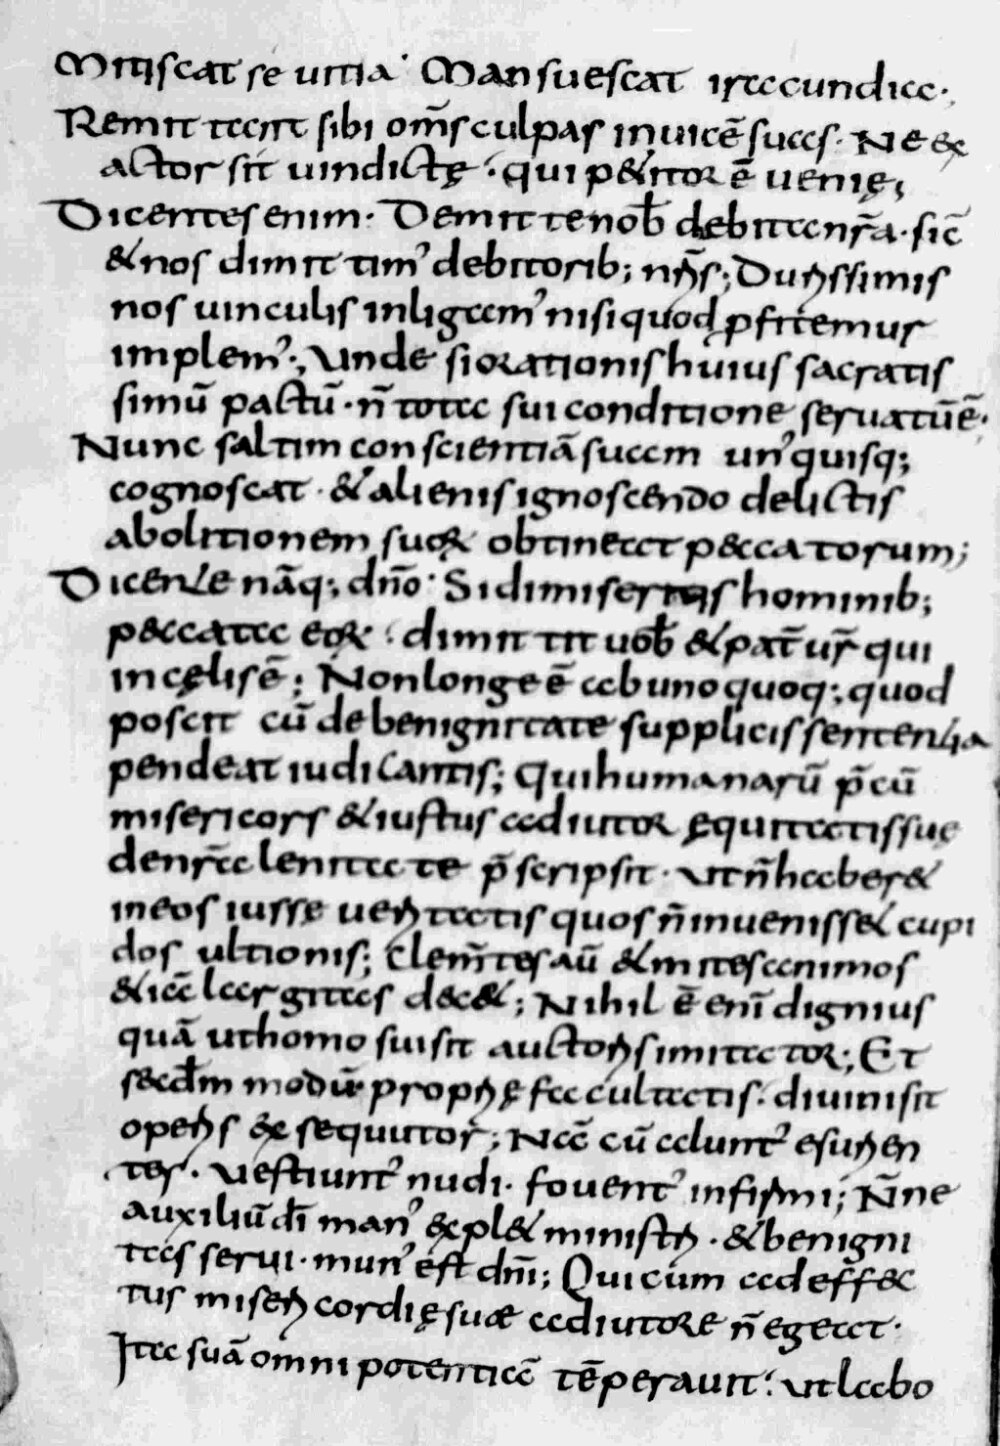 Mitiscat seuitia· Mansuescat iracundia·
Remittat sibi om̄s culpas inuicē suas· Ne ex
actor sit uindictę· qui p&itor ē uenię;
Dicentes enim· Demitte nob̄ debita nr̄a· sic̄
& nos dimittim' debitorib; nr̄s; Durissimis
nos uinculis inligam' nisi quod profitemur
implem'; Unde si orationis huius sacratis
simū pactū· n̄ tota sui conditione seruatū ē·
Nunc saltim conscientiā suam un'quisq;
cognoscat· & alienis ignoscendo delictis
abolitionem suoꝝ obtineat peccatorum;
Dicente nāq; dn̄o· Si dimiseritis hominib;
peccata eoꝝ· dimittit uob̄ & pat̄ ur̄ qui
in cęlis ē; Non longe ē ab uno quoq; quod
poscit cū de benignitate supplicis sententia
pendeat iudicantis; Qui humanarū p̄cū
misericors & iustus aditor ęquitatis suę
de nr̄a lenitate p̄scripsit· ut n̄ haber&
in eos ius seueritatis quos n̄ inueniss& cupi
dos ultionis; Clem̄tes aū & mites animos
& iā largitas dec&; Nihil ē eni᷑ dignius
quā ut homo sui sit auctoris imitator; Et
secd̄m modū proprię facultatis· diuini sit
operis exsequutor; Nā cū alunt' esurien
tes· uestiunt' nudi· fouent' infirmi; N̄ne
auxiliū dī man' expl& ministri· & benigni
tas serui· mun' est dn̄i; Qui cum ad effec
tus misericordię suae adiutore n̄ egeat·
Ita suā omnipotentiā tēperauit· ut labo